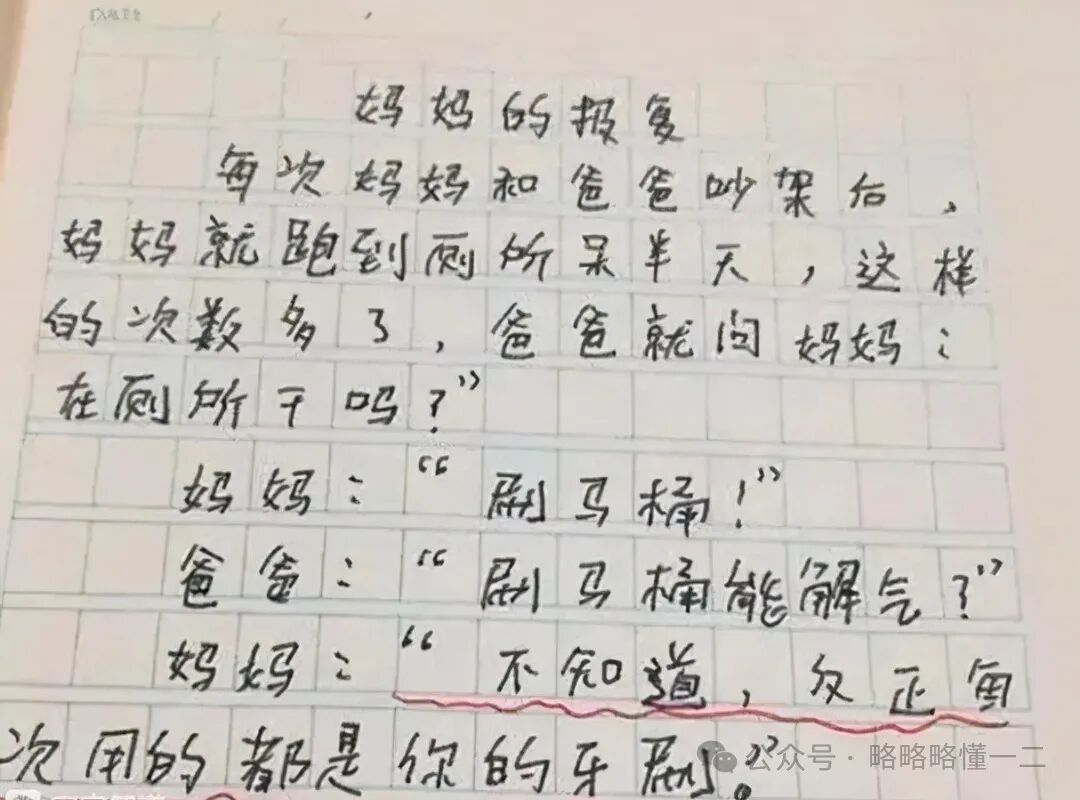 妈妈的报复
每次妈妈和爸爸吵架后,
妈妈就跑到厕所呆半天,这样
的次数多了,爸爸就问妈妈:
在厕所干吗?”
妈妈:“刷马桶!”
爸爸:“刷马桶能解气?”
妈妈:“不知道,反正每
次用的都是你的牙刷。”
公众号·略略略懂一二